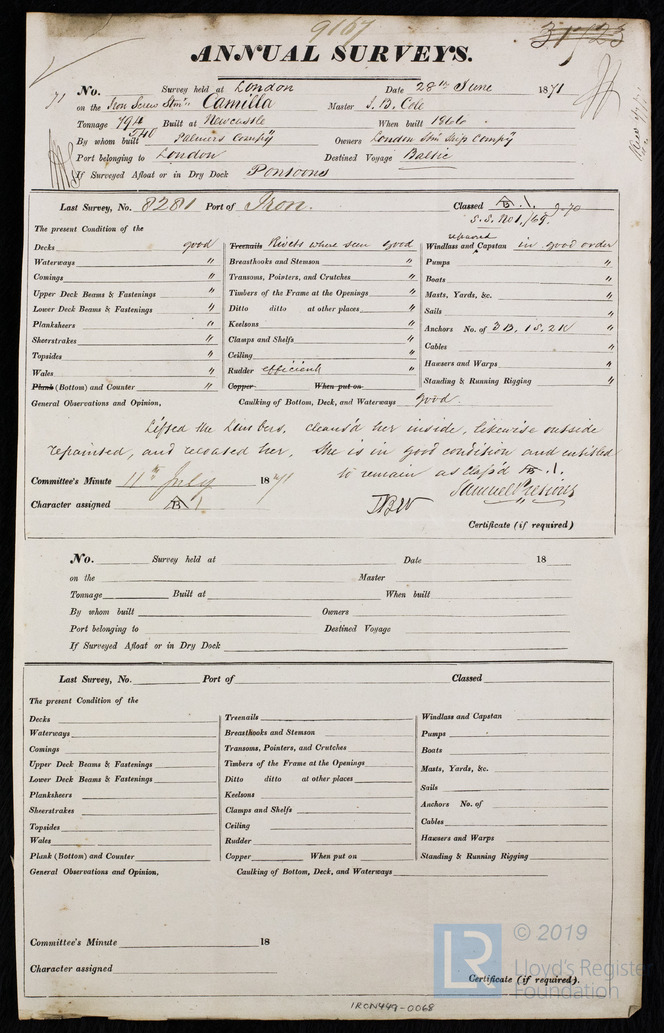 9167
31723
ANNUAL SURVEYS.
71 No. Survey held at London Date 28th June 1871
on the Iron Screw Stmr Camilla Master J. B. Cole
Tonnage 794 Built at Newcastle When built 1866
540
By whom built Palmers Compy Owners London Stm Ship Compy
Port belonging to London Destined Voyage Baltic
If Surveyed Afloat or in Dry Dock Pontoons
Last Survey, No. 8281 Port of Iron. Classed A 1. 9.70
S.S. No1./69.
The present Condition of the
Decks good
Waterways "
Comings "
Upper Deck Beams & Fastenings "
Lower Deck Beams & Fastenings "
Planksheers "
Sheerstrakes "
Topsides "
Wales "
Plank (Bottom) and Counter "
Treenails Rivets where seen good
Breasthooks and Stemson "
Transoms, Pointers, and Crutches "
Timbers of the Frame at the Openings "
Ditto ditto at other places "
Keelsons "
Clamps and Shelfs "
Ceiling "
Rudder efficient "
Copper When put on
repaired
Windlass and Capstan in good order
Pumps "
Boats "
Masts, Yards, &c. "
Sails "
Anchors No. of 3B, 1S, 2K "
Cables "
Hawsers and Warps "
Standing & Running Rigging "
General Observations and Opinion, Caulking of Bottom, Deck, and Waterways good.
Lifted the Limbers, cleans'd her inside, likewise outside
repainted, and recoated her, She is in good condition and entitled
to remain as class'd A 1.
Committee's Minute 11th July 1871
Samuel Presious
Character assigned A 1
Certificate (if required)
No. Survey held at Date 18
on the Master
Tonnage Built at When built
By whom built Owners
Port belonging to Destined Voyage
If Surveyed Afloat or in Dry Dock
Last Survey, No. Port of Classed
The present Condition of the
Decks
Waterways
Comings
Upper Deck Beams & Fastenings
Lower Deck Beams & Fastenings
Planksheers
Sheerstrakes
Topsides
Wales
Plank (Bottom) and Counter
Treenails
Breasthooks and Stemson
Transoms, Pointers, and Crutches
Timbers of the Frame at the Openings
Ditto ditto at other places
Keelsons
Clamps and Shelfs
Ceiling
Rudder
Copper When put on
Windlass and Capstan
Pumps
Boats
Masts, Yards, &c.
Sails
Anchors No. of
Cables
Hawsers and Warps
Standing & Running Rigging
General Observations and Opinion, Caulking of Bottom, Deck, and Waterways
Committee's Minute 18
Character assigned
Certificate (if required).
LR © 2019
Lloyd's Register
Foundation
IRON449-0068